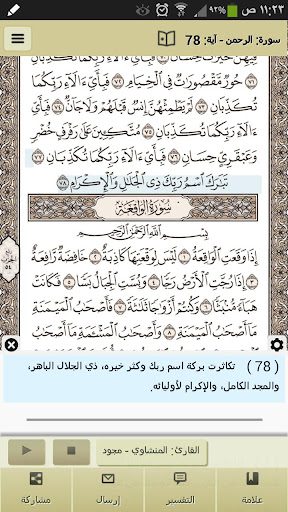 ١١:٢٣ ص ٩٢%
سورة: الرحمن - آية: 78 78
فِيهِنَّ خَيْرَٰتٌ حِسَانٌ ۝٧٠ فَبِأَيِّ ءَالَآءِ رَبِّكُمَا
تُكَذِّبَانِ ۝٧١ حُورٌ مَّقْصُورَٰتٌ فِي ٱلْخِيَامِ ۝٧٢ فَبِأَيِّ ءَالَآءِ رَبِّكُمَا
تُكَذِّبَانِ ۝٧٣ لَمْ يَطْمِثْهُنَّ إِنسٌ قَبْلَهُمْ وَلَا جَآنٌّ ۝٧٤ فَبِأَيِّ
ءَالَآءِ رَبِّكُمَا تُكَذِّبَانِ ۝٧٥ مُتَّكِـِٔينَ عَلَىٰ رَفْرَفٍ خُضْرٍ
وَعَبْقَرِيٍّ حِسَانٍ ۝٧٦ فَبِأَيِّ ءَالَآءِ رَبِّكُمَا تُكَذِّبَانِ ۝٧٧
تَبَٰرَكَ ٱسْمُ رَبِّكَ ذِي ٱلْجَلَٰلِ وَٱلْإِكْرَامِ ۝٧٨
سُورَةُ الوَاقِعَةِ
بِسْمِ ٱللَّهِ ٱلرَّحْمَٰنِ ٱلرَّحِيمِ
إِذَا وَقَعَتِ ٱلْوَاقِعَةُ ۝١ لَيْسَ لِوَقْعَتِهَا كَاذِبَةٌ ۝٢ خَافِضَةٌ رَّافِعَةٌ
۝٣ إِذَا رُجَّتِ ٱلْأَرْضُ رَجًّا ۝٤ وَبُسَّتِ ٱلْجِبَالُ بَسًّا ۝٥ فَكَانَتْ
هَبَآءً مُّنۢبَثًّا ۝٦ وَكُنتُمْ أَزْوَٰجًا ثَلَٰثَةً ۝٧ فَأَصْحَٰبُ
ٱلْمَيْمَنَةِ مَآ أَصْحَٰبُ ٱلْمَيْمَنَةِ ۝٨ وَأَصْحَٰبُ ٱلْمَشْـَٔمَةِ مَآ أَصْحَٰبُ
الحزب
٥٤
(78) تكاثرت بركة اسم ربك وكثر خيره، ذي الجلال الباهر،
والمجد الكامل، والإكرام لأوليائه.
القارئ: المنشاوي - مجود
علامة
التفسير
إرسال
مشاركة